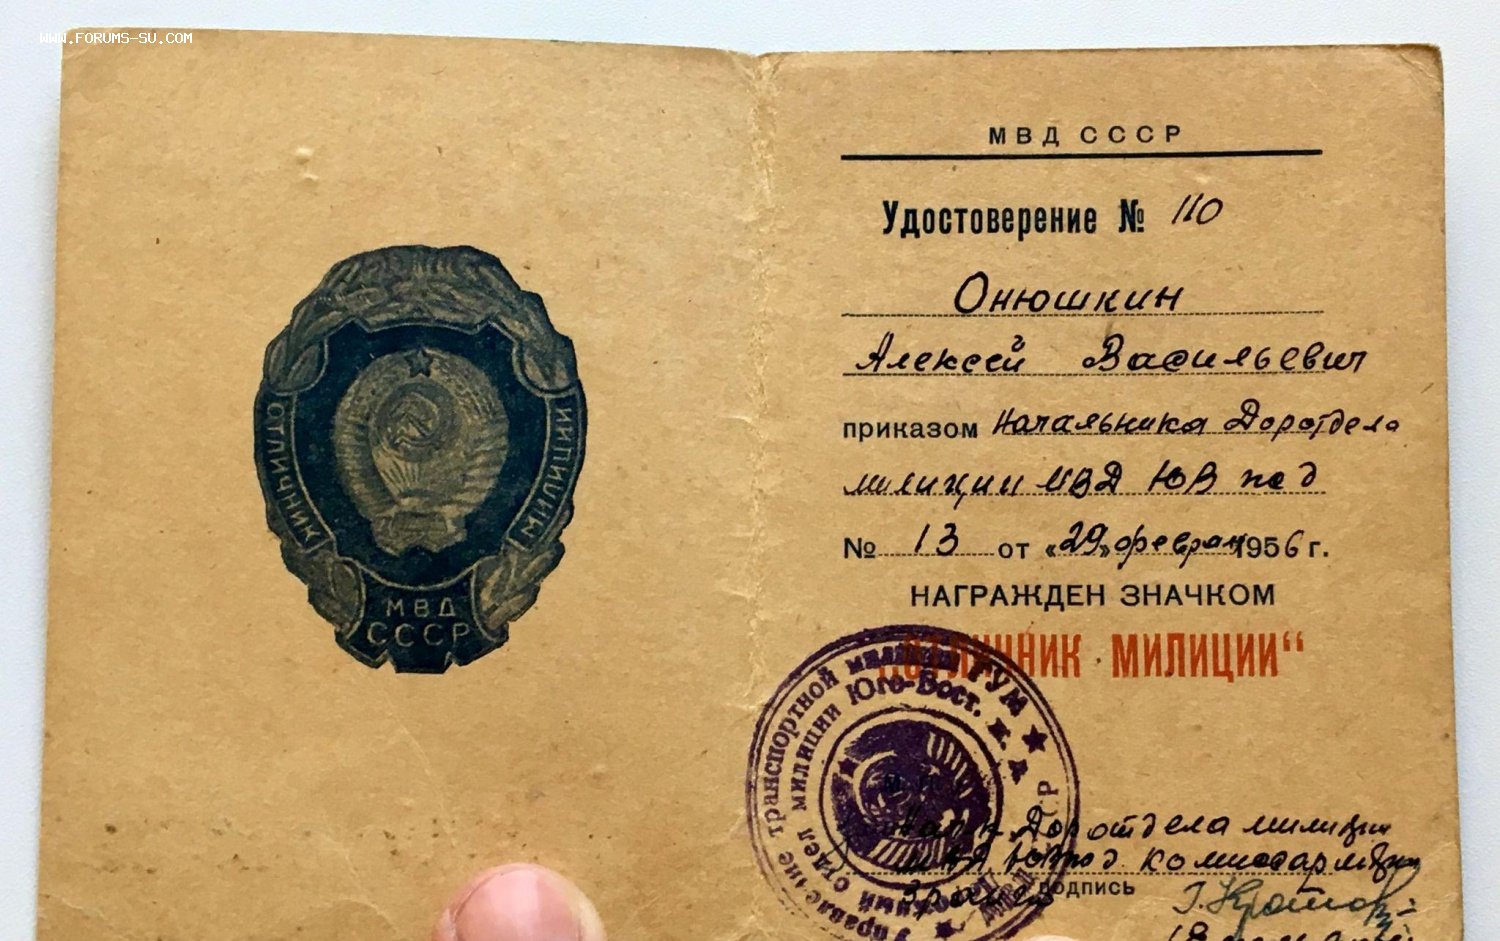 WWW.FORUMS-SU.COM
ОТЛИЧНИК МИЛИЦИИ
МВД
СССР
МВД СССР
Удостоверение № 110
Онюшкин
Алексей Васильевич
приказом Начальника Доротдела
милиции МВД ЮВ жед
№ 13 от «29» февраля 1956 г.
НАГРАЖДЕН ЗНАЧКОМ
„ОТЛИЧНИК МИЛИЦИИ“
Управление транспортной милиции ГУМ
отдел милиции Юго-Вост. ж. д.
М. П.
Нач-к Доротдела милиции
МВД ЮВжд комиссар милиции
3 ранга
подпись